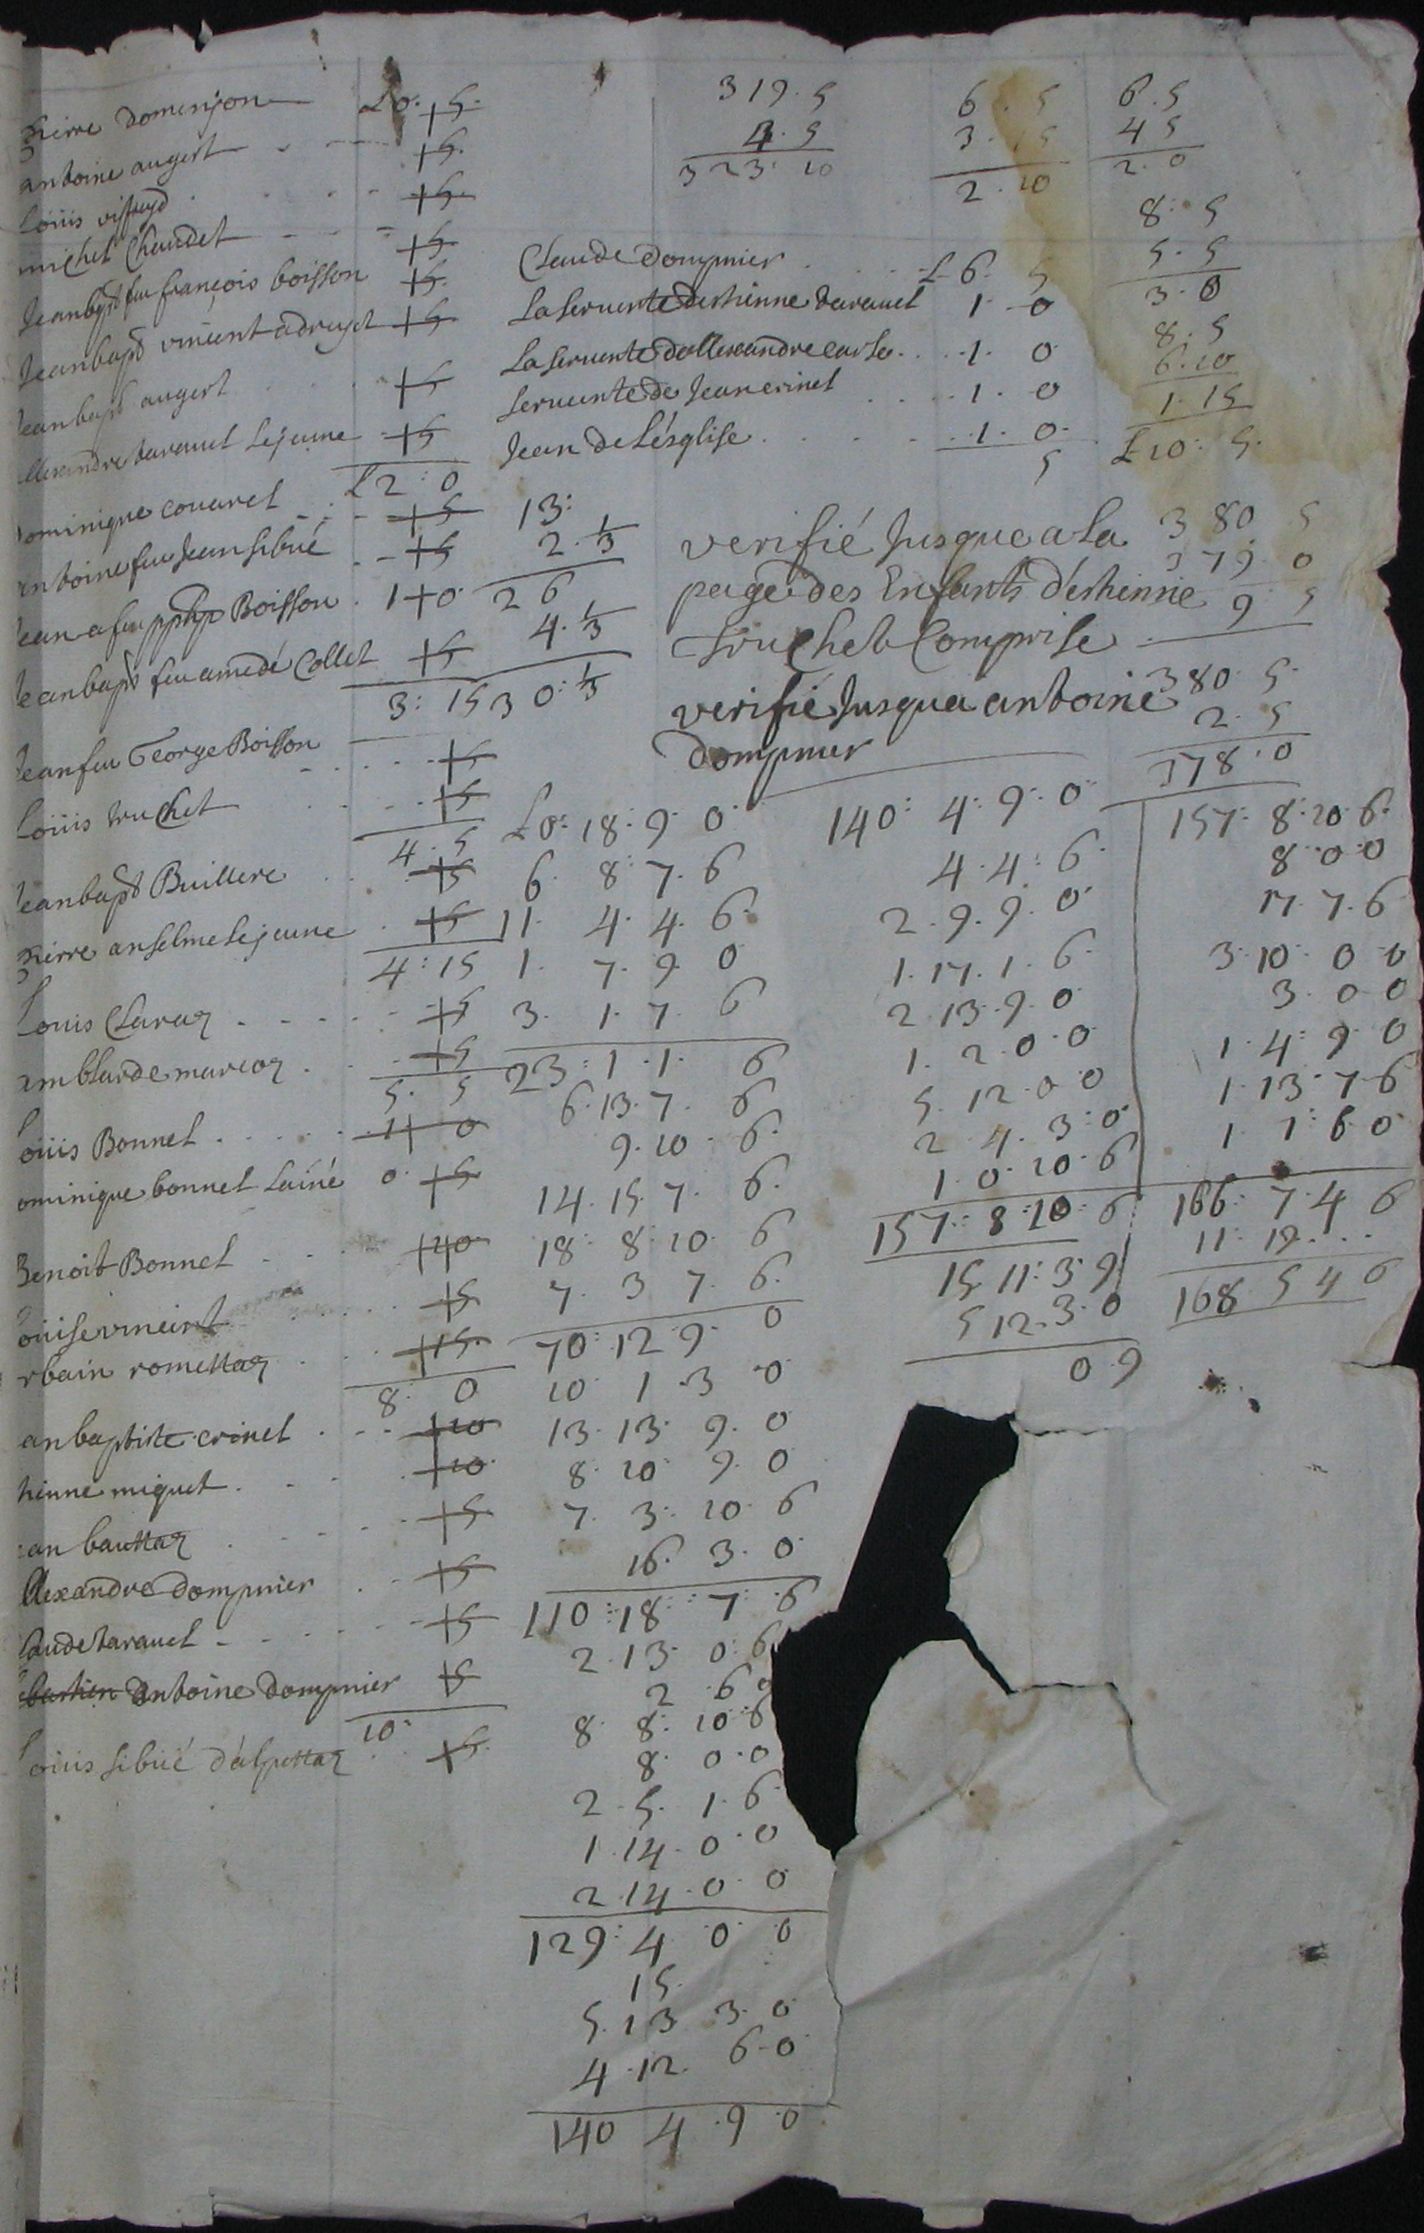 pierre domenjon £0. 5.
antoine augert 5.
Loüis
michel Chaudet 5
Jean bapt feu françois boisson 5.
Jean bapt vincent 5
Jean bapt augert 5
allexandre taravel Lejeune 5
£2 : 0
Dominique couvert 5
antoine feu Jean sibué 5
Jean a feu Boisson 10
Jean bapt feu amedé Collet 5
3 : 15
Jean feu George Boisson 5
Loüis truchet 5
4 . 5
Jean bapt Buillere 5
pierre anselme Lejeune 5
4 : 15
Louis Claraz 5
amblarde marcoz 5
5 . 5
Loüis Bonnel 1 0
Dominique bonnel Lainé 0 . 5
Benoit Bonnel 10
Loüise vincent 5
urbain romettaz 15.
8 . 0
Jean baptiste crinel 10
Ethienne miquet 10
Jean bauttaz 5
Allexandre Dompnier 5
Claude taravel 5
antoine Dompnier 5
10 :
Loüis sibüé 5.
319 . 5
4 . 5
323 : 10
6 . 5
3 . 15
2 . 10
6 . 5
4 5
2 . 0
8 : 5
5 . 5
3 . 0
8 . 5
6 . 10
1 . 15
£10 : 5.
Claude dompnier £6 . 5
La servente dethienne taravel 1 . 0
La servente dallexandre 1 . 0
servente de Jean crinel 1 . 0
Jean de Lésglise 1 . 0.
5
13 :
2 . 1/3
26
4 . 1/3
30 : 1/3
verifié Jusque a La
page des Enfants dethienne
truchet Comprise
380 5
379 . 0
9 5
verifié Jusqua antoine
dompnier
380 . 5
2 . 5
378 . 0
£0 : 18 : 9 . 0
6 . 8 : 7 . 6
11 . 4 . 4 . 6
1 . 7 . 9 0
3 . 1 . 7 . 6
23 : 1 . 1 . 6
6 . 13 . 7 . 6
9 . 10 . 6
14 . 15 . 7 . 6
18 . 8 . 10 6
7 . 3 7 . 6
70 : 12 9 . 0
10 1 . 3 0
13 . 13 9 . 0
8 . 10 9 . 0
7 . 3 . 10 . 6
16 . 3 . 0
110 : 18 : 7 . 6
2 . 13 . 0 . 6
2 . 6 0
8 . 8 : 10 . 6
8 . 0 . 0
2 . 5 . 1 . 6
1 . 14 . 0 . 0
2 . 14 . 0 . 0
129 : 4 0 . 0
15 .
5 . 13 3 . 0
4 . 12 . 6 . 0
140 4 . 9 . 0
140 : 4 . 9 : 0
4 . 4 : 6
2 . 9 . 9 . 0
1 . 17 . 1 . 6
2 13 . 9 . 0
1 . 2 . 0 . 0
5 . 12 . 0 0
2 . 4 . 3 : 0
1 . 0 . 10 . 6
157 : 8 : 10 . 6
15 11 : 3 9
5 12 . 3 . 0
0 . 9
157 : 8 : 10 6
8 . 0 0
17 . 7 . 6
3 . 10 . 0 0
3 . 0 0
1 . 4 : 9 0
1 . 13 . 7 . 6
1 . 1 : 6 0
166 : 7 . 4 6
11 : 19 . . .
168 5 4 6